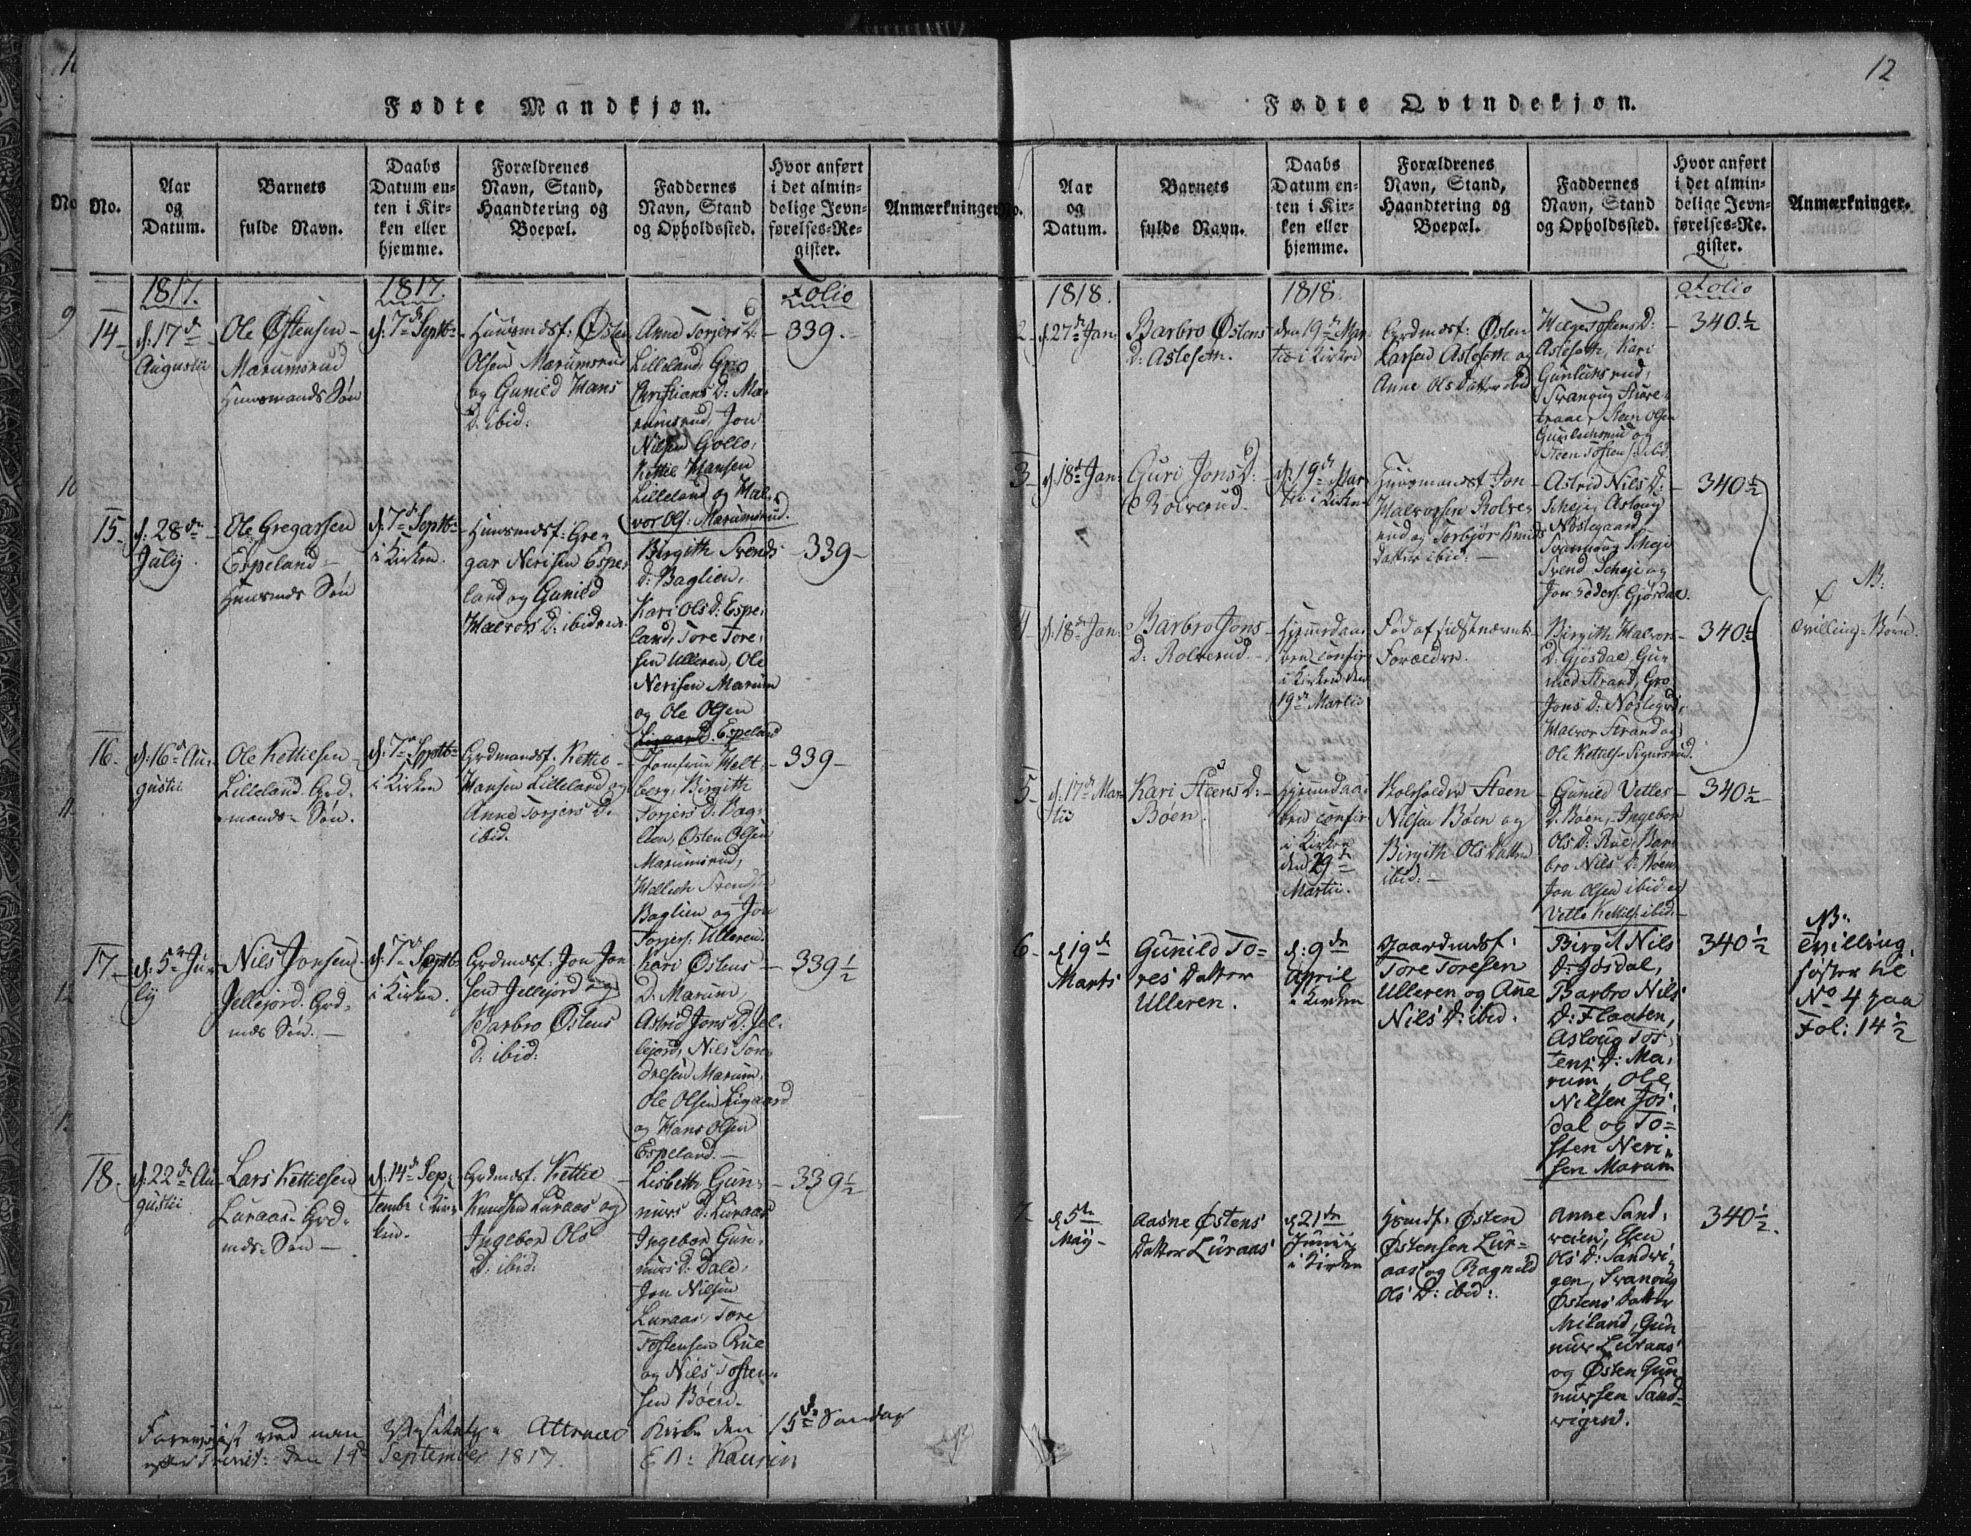 12
Fødte Mandkjøn.
No.
Aar
og
Datum.
Barnets
fulde Navn.
Daabs
Datum en-
ten i Kir-
ken eller
hjemme.
Forældrenes
Navn, Stand,
Haandtering og
Boepæl.
Faddernes
Navn, Stand
og Opholdssted.
Hvor anført
i det almin-
delige Jevn-
førelses-Re-
gister.
Anmærkninger
1817.
1817.
Folio
14-
d. 17de
Augustii
Ole Østensen
Marumsrud
Huusmands Søn
d: 7de Septb
Huusmdsf: Østen
Olsen Marumsrud
og Gunild Hans
D. ibid:
Anne Torjers D:
Lilleland, Gro
Christians D: Ma-
rumsrud, Jon
Nilsen Gollo,
Kettil Hansen
Lilleland og Hal-
vor Ols: Marumsrud.
339.
15-
d: 28de
July
Ole Gregarsen
Espeland
Huusmds Søn
d. 7de Septb
i Kirken.
Huusmdsf: Gre-
gar Nerisen Espe-
land og Gunild
Halvors D: ibidem
Birgith Svends
D: Baglien,
Kari Ols D: Espe-
land, Tore Tore-
sen Ulleren, Ole
Nerisen Marum
og Ole Olsen
Espeland
339-
16-
d: 16de Au-
gustii
Ole Kettilsen
Lilleland Grd-
mands Søn.
d. 7de Septb
i Kirken
Grdmandsf. Kettil
Hansen Lilleland og
Anne Torjers D.
ibid.
Jomfrue Helt-
berg, Birgith
Torjers D: Bag-
lien, Østen Olsen
Marumsrud,
Svends
Baglien og Jon
Torjers: Ulleren.
339-
17-
d: 5te Ju-
ly
Nils Jonsen
Jellejord. Grd-
mds Søn.
d. 7de Septb
i Kirken.
Grdmdsf. Jon Jon
sen Jellejord og
Barbro Østens
D: ibid:
Kari Østens
D: Marum,
Astrid Jons D: Jel-
lejord, Nils Ton-
dresen Marum,
Ole Olsen Ligaard
og Hans Olsen
Espeland.
339½
18.
d: 22de Au-
gustii
Lars Kettilsen
Luraas Grd-
mds Søn
d. 14de Sep-
tembr i Kir-
ken.
Grdmdsf. Kettil
Knudsen Luraas og
Ingebor Ols
D: ibid:
Lisbeth Gun-
nurs D: Luraas
Ingebor Gun-
nurs D: Dale,
Jon Nilsen
Luraas, Tore
Tostensen Rue
og Nils Tosten-
sen Bøen.
339½
Forevist ved min Visitatz i Attraae Kirke den 15de Søndag
efter Trinit: den 14de September 1817. E B: Kaurin
Fødte Qvindekjøn.
No.
Aar
og
Datum.
Barnets
fulde Navn.
Daabs
Datum en-
ten i Kir-
ken eller
hjemme.
Forældrenes
Navn, Stand,
Haandtering og
Boepæl.
Faddernes
Navn, Stand
og Opholdssted.
Hvor anført
i det almin-
delige Jevn-
førelses-Re-
gister.
Anmærkninger.
1818.
1818.
Folio
2-
d. 27de Jan:
Barbro Østens
D: Aslesett.
den 19de Mar-
tii i Kirken
Grdmdsf: Østen
Larsen Aslesett og
Anne Ols Datter ibid
Helge Ostens D:
Aslesett, Kari
Gunleiks rud,
Svanoug
Steen Olsen
Gunleiksrud og
Steen Tosten ibid.
340½
3-
d. 18de Jan:
Guri Jons D:
Rolverud.
d: 19de Mar-
tii i Kirken
Huusmandsf. Jon
Halvorsen Rolve-
rud og Torbjør Knuds
Datter ibid:
Astrid Nils D:
Scheje, Asloug
Nøslegaard,
Svanoug Scheje
Svend Scheje og
Jon Gjøsdal.
340½
4-
d. 18de Jan:
Barbro Jons
D: Rolverud
Hjemmedaa-
bens confir:
i Kirken den
19de Martii
Fød af sidstnævnte
Forældre.
Birgith Halvors
D: Gjøsdal, Gun-
nild Strand, Gro
Jons D: Nøslegrd,
Halvor Strand og
Ole Kettils: Sigursrud.
340½
NB:
tvilling-Børn.
5-
d. 17de Mar-
tii
Kari Steens D:
Bøen.
Hjemdaa-
bens confir
i Kirken
den 29de
Martii.
Steen
Nilsen Bøen og
Birgith Ols Datter
ibid:
Gunild Vetles
D: Bøen, Ingebor
Ols D: Rue, Bar-
bro Nils D: Bøen
Jon Olsen ibid: og
Vetle Kettils: ibid:
340½
6-
d. 19de
Marts
Gunild To-
res Datter
Ulleren.
d: 9de
April
i Kirken
Gaardmdsf:
Tore Toresen
Ulleren og Ane
Nils D: ibid.
Birgit Nils
D: Jøsdal,
Barbro Nils
D: Flaaten,
Asloug Tos-
tens D: Ma-
rum, Ole
Nilsen Jøs-
dal og To-
sten Neri-
sen Marum
340½
NB:
tvilling-
søster til
No 4 paa
Fol: 14½
7-
d. 5te
May
Aasne Østens
Datter Luraas
d. 21de
Junii
i Kirken
Østen
Østensen Lur-
aas og Ragnild
Ols D: ibid:
Anne Sand-
veien,
Ols D: Sandvi-
gen, Svanoug
Østens Datter
Miland, Gun-
nur Luraas
og Østen Gun
nursen Sand-
vigen.
340½